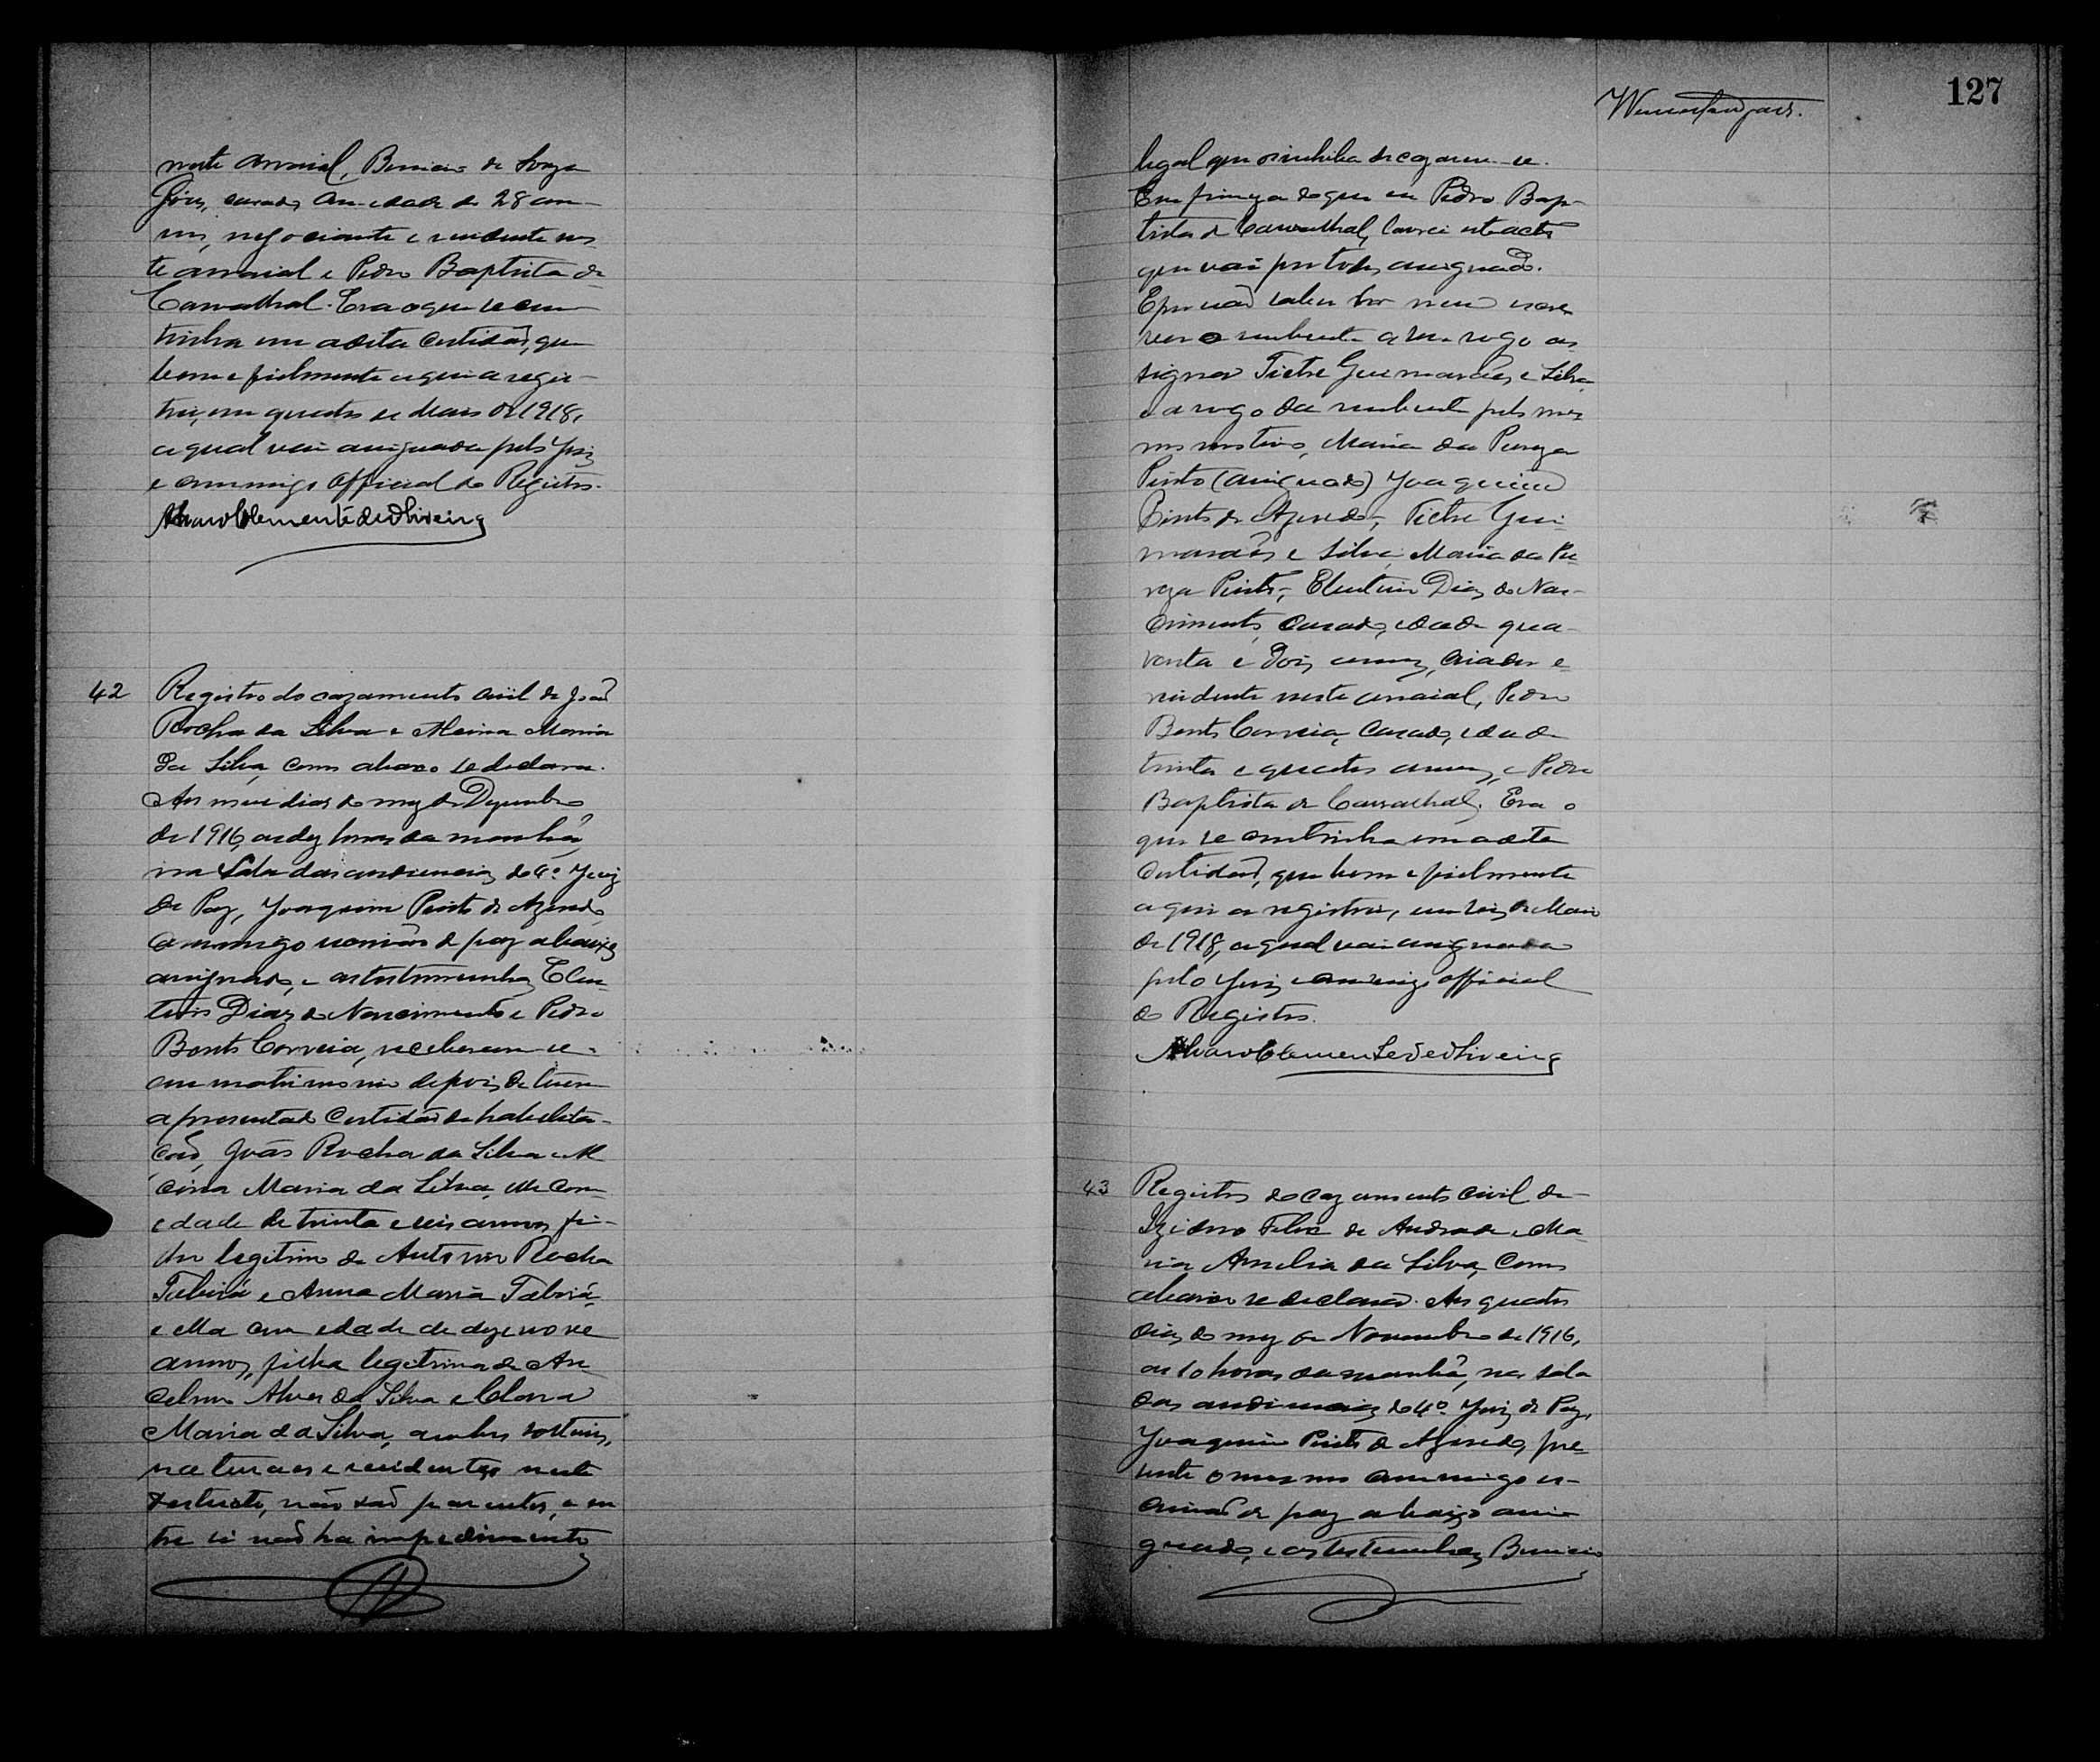 neste arraial, Benicio de Souza
Góes, casado com edade de 28 an-
nos, negociante e residente nes-
te arraial e Pedro Baptista de
Carvalhal. Era o que se con
tinha em a dita certidão, que
bem e fielmente aqui a regis-
trei, em quatro de Maio de 1918,
a qual vai assignada pelo Juiz
e commigo Official do Registro.
Alvaro Clemente de Oliveira
42 Registro do cazamento civil de João
Rocha da Silva e Alcina Maria
da Silva, como abaxo se declara.
Aos nove dias do mez de Dezembro
de 1916, as dez horas da manhã,
na Sala das audiencias do 4º Juiz
de Paz, Joaquim Pinto de Azevedo,
commigo escrivão de paz abaixo
assignado, e as testemunhas Eleu
terio Dias do Nascimento e Pedro
Bento Correia, receberam-se
em matrimonio depois de terem
apresentado certidão de habilita-
ção, João Rocha da Silva e Al
cina Maria da Silva, elle com
edade de trinta e seis annos, fi-
lho legitimo de Antonio Rocha
e Anna Maria
e ella com edade de dezenove
annos, filha legitima de An
celmo Alves da Silva e Clara
Maria da Silva, ambos solteiros,
naturaes e residentes neste
destricto, não são parentes, e en
tre si não ha impedimento
127
legal que os inhiba de cazarem-se.
Em firmeza do que eu Pedro Bap-
tista de Carvalhal, lavrei este acto
que vai por todos assignado.
E por não saber ler nem escre
ver o nubente a seu rogo as
signou Guimarães e Silva
e a rogo da nubente pelo mes
mo motivo, Maria da Pureza
Pinto (assignado) Joaquim
Pinto de Azevedo, Gui
marães e Silva, Maria da Pu
reza Pinto, Eleuterio Dias do Nas-
cimento, casado, edade qua-
renta e dois annos, criador e
residente neste arraial, Pedro
Bento Correia, casado, edade
trinta e quatro annos, e Pedro
Baptista de Carvalhal. Era o
que se continha em a dita
certidão, que bem e fielmente
aqui a registrei, em seis de Maio
de 1918, a qual vai assignada
pelo Juiz e commigo official
do Registro.
Alvaro Clemente de Oliveira
43 Registro do cazamento civil de
Izidoro Felix de Andrade e Ma
ria Amelia da Silva, como
abaixo se declara. Aos quatro
dias do mez de Novembro de 1916,
as 10 horas da manhã, na sala
das audiencias do 4º Juiz de Paz,
Joaquim Pinto de Azevedo, pre
sente o mesmo commigo es-
crivão de paz abaixo assi-
gnado, e as testemunhas Benicio